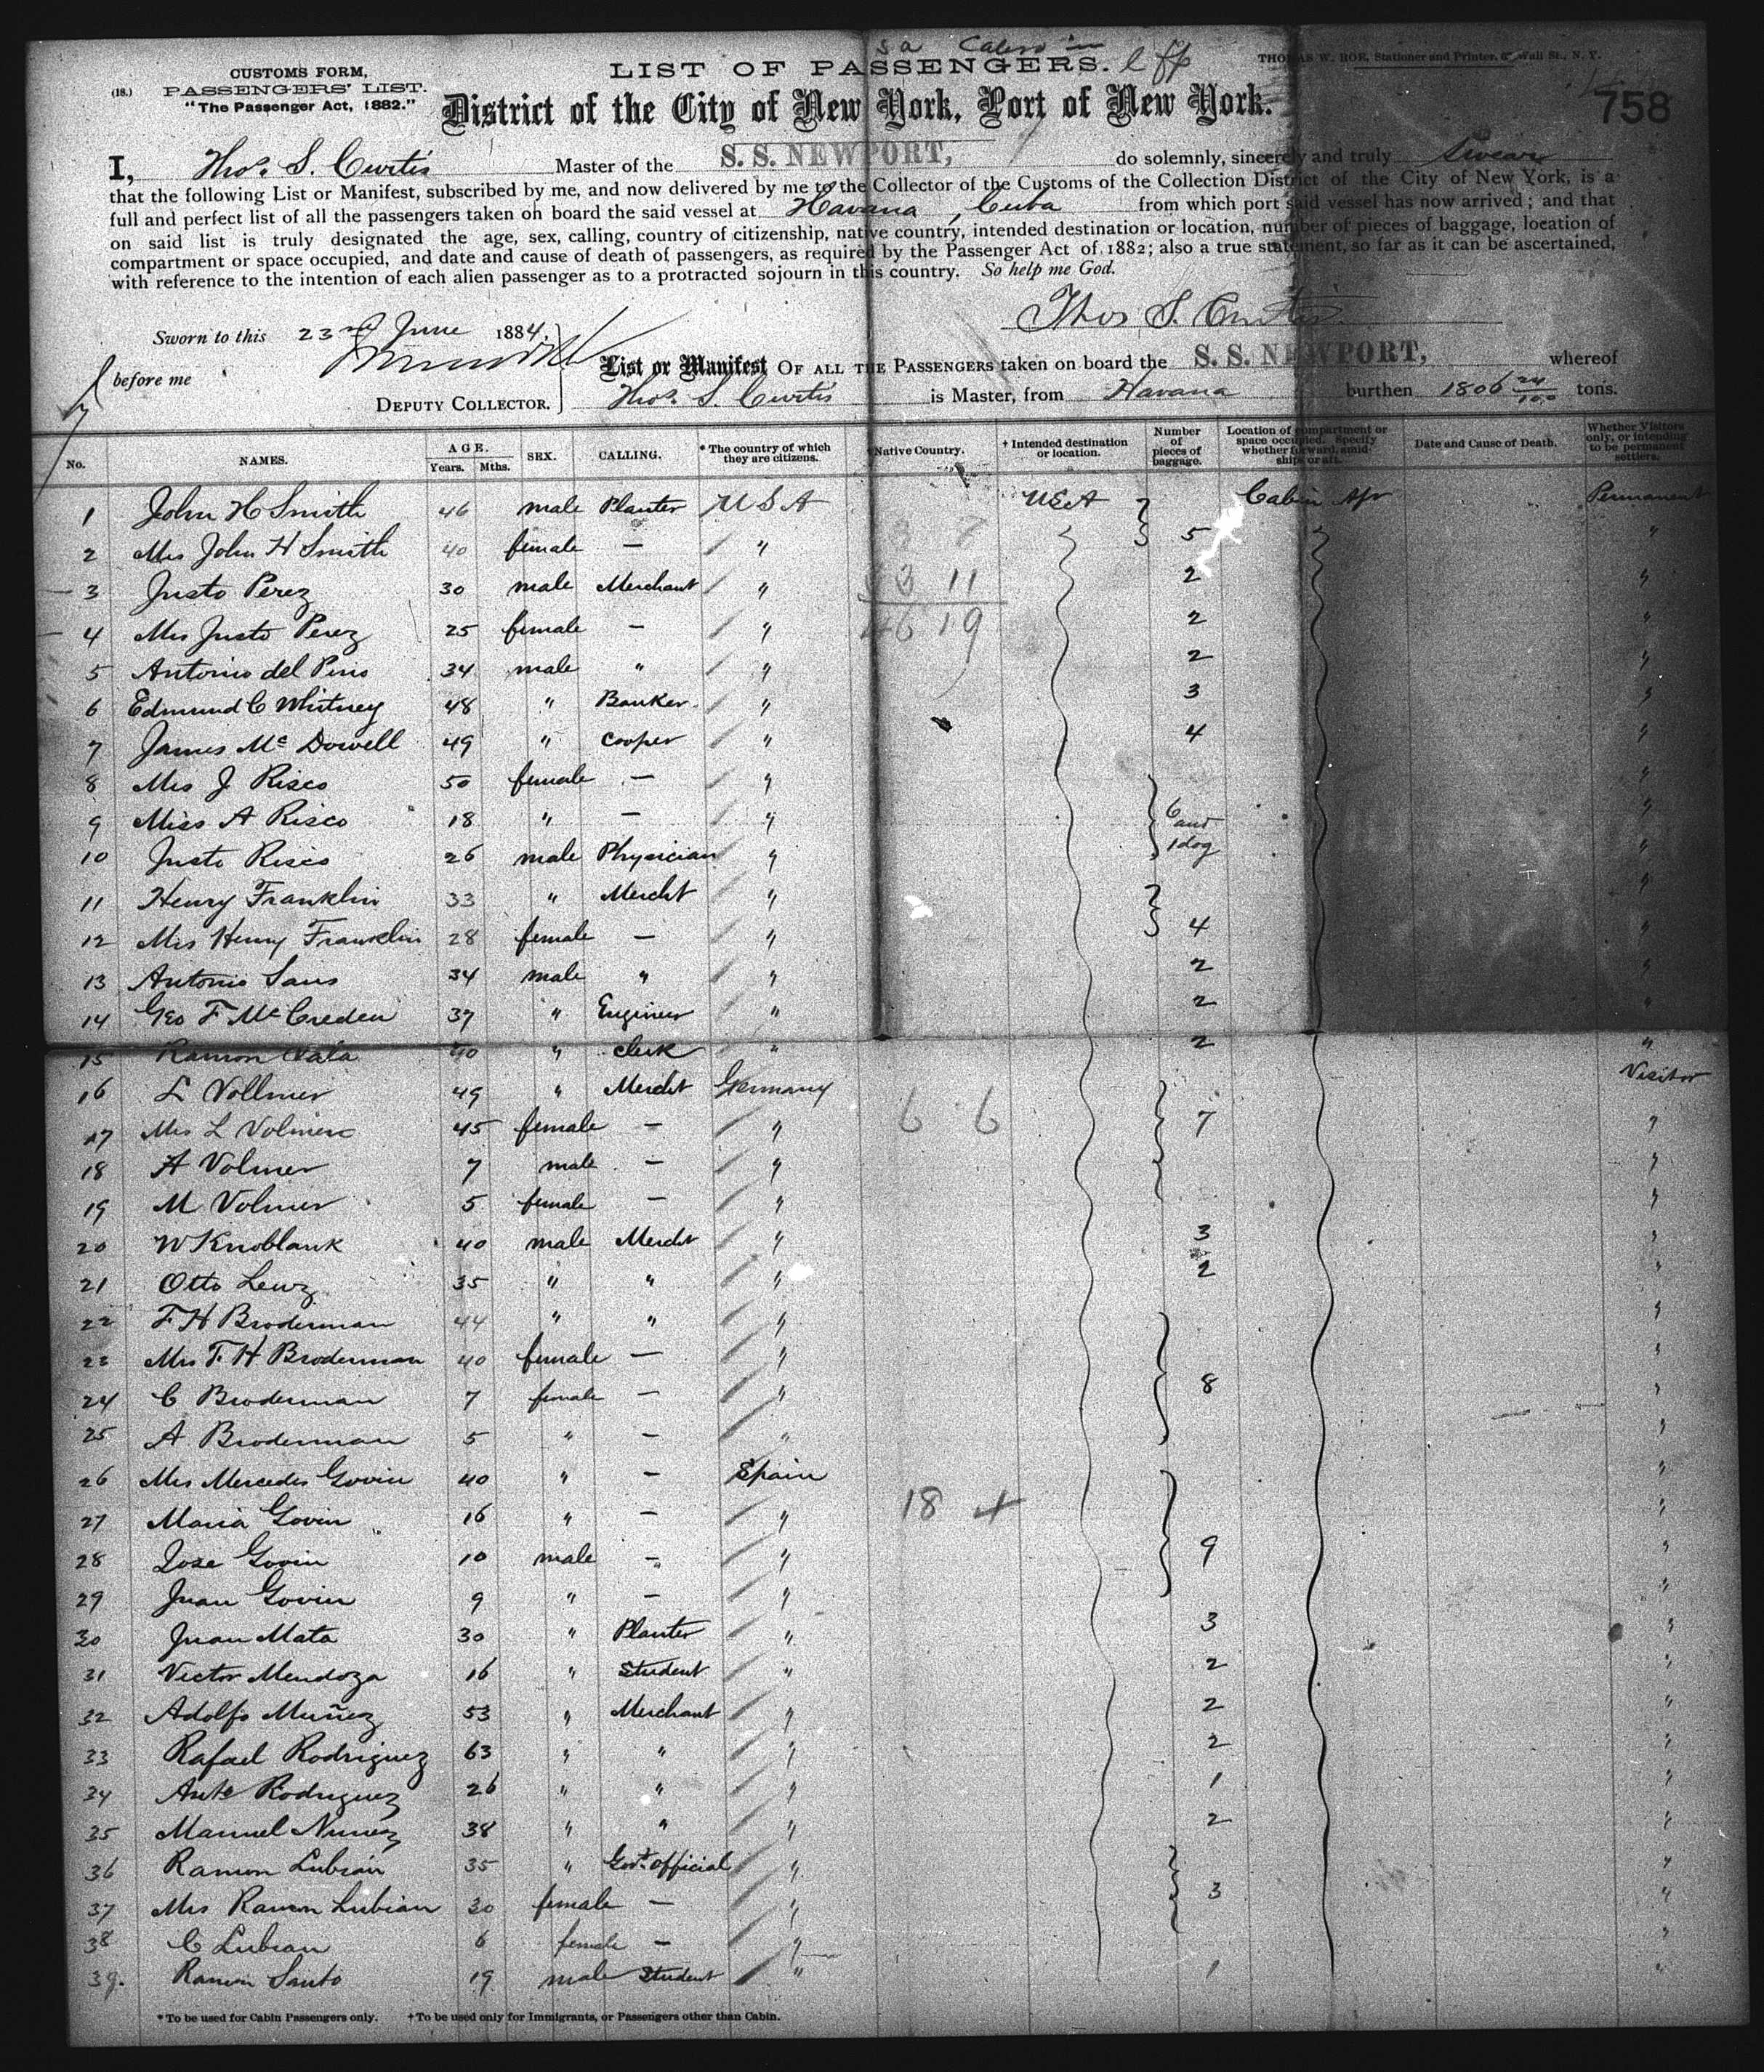 LIST OF PASSENGERS.
THOMAS W. ROE, Stationer and Printer, Wall St., N. Y.
(18.) CUSTOMS FORM,
PASSENGERS' LIST.
"The Passenger Act, 1882."
District of the City of New York, Port of New York.
758
I, Thos. S. Curtis Master of the S. S. NEWPORT, do solemnly, sincerely and truly swear
that the following List or Manifest, subscribed by me, and now delivered by me to the Collector of the Customs of the Collection District of the City of New York, is a
full and perfect list of all the passengers taken on board the said vessel at Havana, Cuba from which port said vessel has now arrived; and that
on said list is truly designated the age, sex, calling, country of citizenship, native country, intended destination or location, number of pieces of baggage, location of
compartment or space occupied, and date and cause of death of passengers, as required by the Passenger Act of 1882; also a true statement, so far as it can be ascertained,
with reference to the intention of each alien passenger as to a protracted sojourn in this country. So help me God.
Thos S. Curtis
Sworn to this 23rd June 1884,
before me
List or Manifest OF ALL THE PASSENGERS taken on board the S. S. NEWPORT, whereof
DEPUTY COLLECTOR. Thos. S. Curtis is Master, from Havana burthen 1806 24/100 tons.
No. NAMES. AGE. Years. Mths. SEX. CALLING. *The country of which they are citizens. Native Country. †Intended destination or location. Number of pieces of baggage. Location of compartment or space occupied. Specify whether forward, amidships or aft. Date and Cause of Death. Whether Visitors only, or intending to be permanent settlers.
1 John H Smith 46 male Planter USA USA Cabin Aft Permanent
2 Mrs John H Smith 40 female — " 5 "
3 Justo Perez 30 male Merchant " 2 "
4 Mrs Justo Perez 25 female — " 2 "
5 Antonio del Pino 34 male " " 2 "
6 Edmund C Whitney 48 " Banker " 3 "
7 James Mc Dowell 49 " Cooper " 4 "
8 Mrs J Risco 50 female — " "
9 Miss A Risco 18 " — " 6 and 1 dog "
10 Justo Risco 26 male Physician " "
11 Henry Franklin 33 " Mercht " "
12 Mrs Henry Franklin 28 female — " 4 "
13 Antonio Sans 34 male " " 2 "
14 Geo F McCreden 37 " Engineer " 2 "
15 Ramon 40 " clerk " 2 "
16 L Vollmer 49 " Mercht Germany Visitor
17 Mrs L Volmer 45 female — " 7 "
18 A Volmer 7 male — " "
19 M Volmer 5 female — " "
20 W Knoblauk 40 male Mercht " 3 "
21 Otto Lewz 35 " " " 2 "
22 F H Broderman 44 " " " "
23 Mrs F. H Broderman 40 female — " "
24 C Broderman 7 female — " 8 "
25 A Broderman 5 " — " "
26 Mrs Mercedes Govin 40 " — Spain "
27 Maria Govin 16 " — " "
28 Jose Govin 10 male — " 9 "
29 Juan Govin 9 " — " "
30 Juan Mata 30 " Planter " 3 "
31 Victor Mendoza 16 " Student " 2 "
32 Adolfo Muñez 53 " Merchant " 2 "
33 Rafael Rodriguez 63 " " " 2 "
34 Anto Rodriguez 26 " " " 1 "
35 Manuel Nunez 38 " " " 2 "
36 Ramon Lubian 35 " Govt. official " "
37 Mrs Ramon Lubian 30 female — " 3 "
38 C Lubian 6 female — " "
39. Ramon Santo 19 male Student " 1 "
*To be used for Cabin Passengers only. †To be used only for Immigrants, or Passengers other than Cabin.